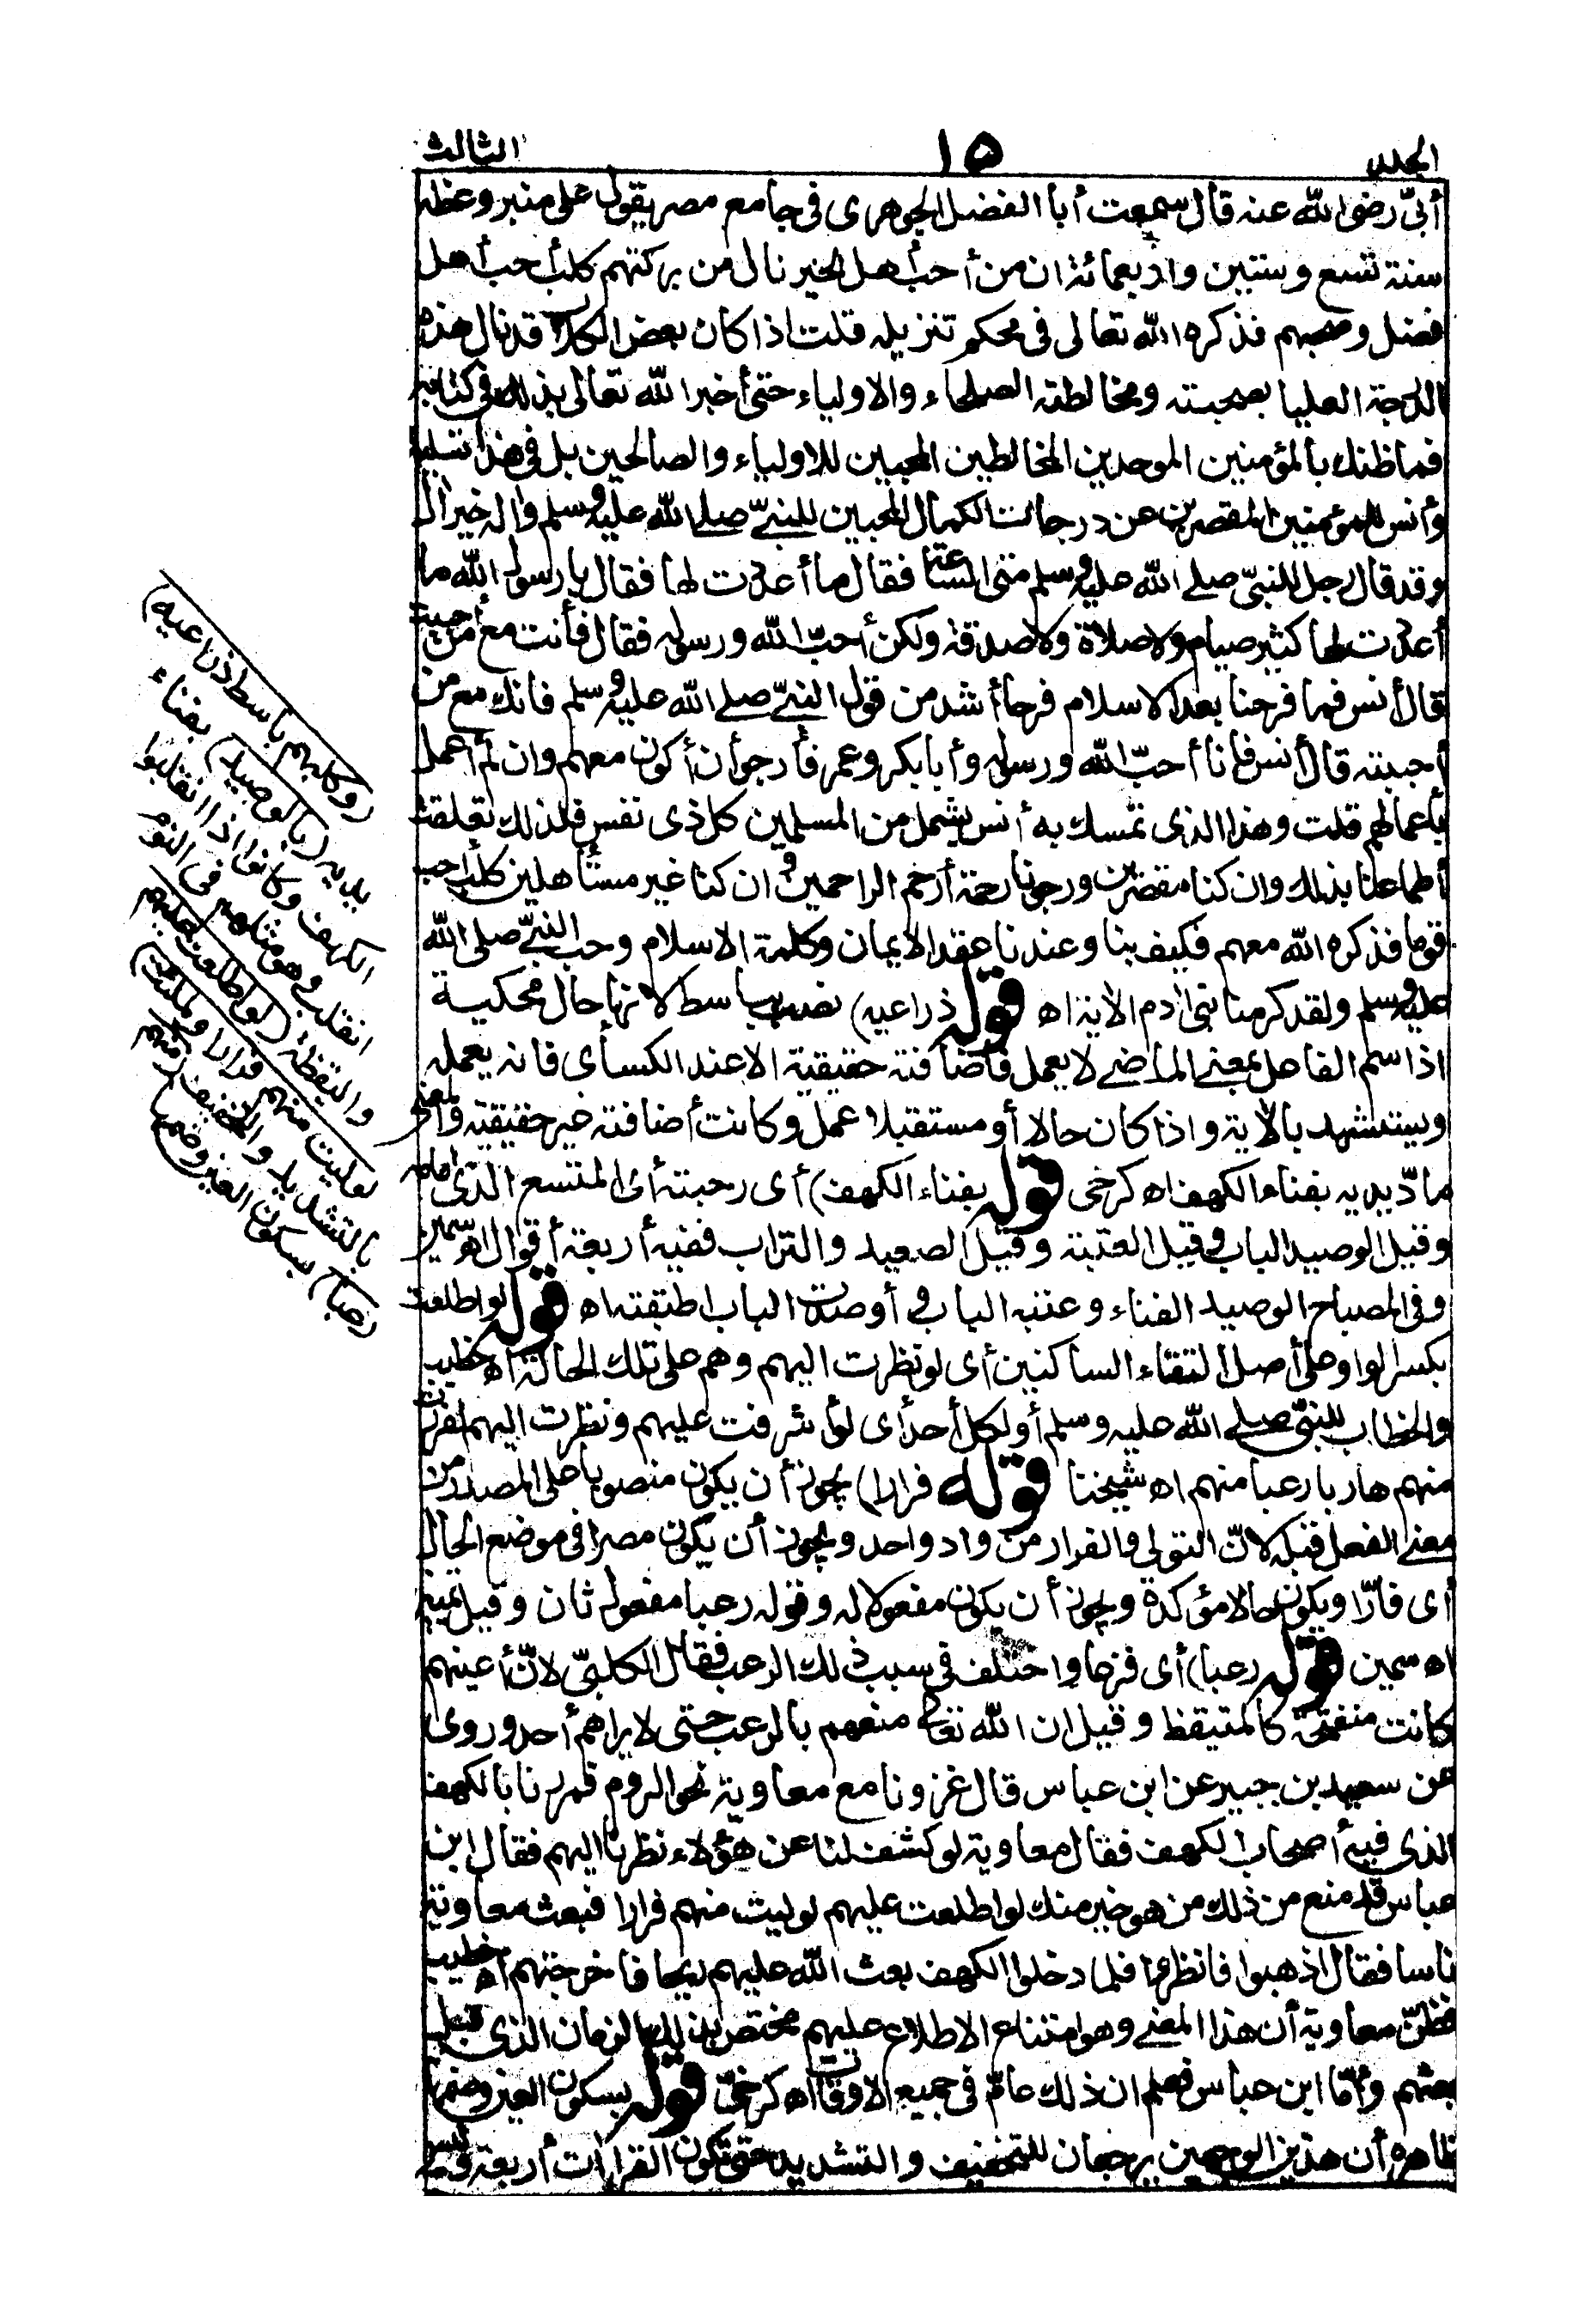 المجلد
١٥
الثالث
أبىّ رضى الله عنه قال سمعت أبا الفضل الجوهرى فى جامع مصر يقول على منبر وعظه
سنة تسع وستين وأربعمائة ان من أحب أهل الخير نال من بركتهم كلب أحب أهل
فضل وصحبهم فذكره الله تعالى فى محكم تنزيله قلت اذا كان بعض الكلاب قد نال هذه
الدرجة العليا بصحبته ومخالطته الصلحاء والاولياء حتى أخبر الله تعالى بذلك فى كتابه
فما ظنك بالمؤمنين الموحدين المخالطين المحبين للاولياء والصالحين بل فى هذا تسلية
وأنس للمؤمنين المقصرين عن درجات الكمال المحبين للنبىّ صلى الله عليه وسلم واله خير ال
وقد قال رجل للنبىّ صلى الله عليه وسلم متى الساعة فقال ما أعددت لها فقال يا رسول الله ما
أعددت لها كثير صيام ولا صلاة ولا صدقة ولكن أحبّ الله ورسوله فقال فأنت مع من أحببت
قال أنس فما فرحنا بعد الاسلام فرحا أشد من قول النبىّ صلى الله عليه وسلم فانك مع من
أحببته قال أنس فأنا أحبّ الله ورسوله وأبا بكر وعمر فأرجو أن أكون معهم وان لم أعمل
بأعمالهم قلت وهذا الذى تمسك به أنس يشمل من المسلمين كل ذى نفس فلذلك تعلقت
أطماعنا بذلك وان كنا مقصرين ورجونا رحمة أرحم الراحمين وان كنا غير مستأهلين كلب أحب
قوما فذكره الله معهم فكيف بنا وعندنا عقد الايمان وكلمة الاسلام وحب النبىّ صلى الله
عليه وسلم ولقد كرمنا بنى أدم الأية اه قوله ذراعيه) نصب بباسط لانها حال محكية
اذا سم الفاعل بمعنى الماضى لا يعمل فاضافته حقيقية الا عند الكسأى فانه يعمله
ويستشهد بالأية واذا كان حالا أو مستقبلا عمل وكانت أضافته غير حقيقية والمعنى
مادّ يديه بفناء الكهف اه كرخى قوله بفناء الكهف) أى رحبته أى المتسع الذى أمامه
وقيل الوصيد الباب وقيل العتبة وقيل الصعيد والتراب ففيه أربعة أقوال اه سمين
وفى المصباح الوصيد الفناء وعتبة الباب وأوصدت الباب اطبقته اه قوله لو اطلعت
بكسر الواو على أصل التقاء الساكنين أى لو نظرت اليهم وهم على تلك الحالة اه خطيب
والخطاب للنبىّ صلى الله عليه وسلم أو لكل أحد أى لو أشرفت عليهم ونظرت اليهم لفررت
منهم هاربا رعبا منهم اه شيخنا قوله فرارا) يجوز أن يكون منصوبا على المصدر من
معنى الفعل قبله لانّ التولى والفرار من واد واحد ويجوز أن يكون مصدرا فى موضع الحال
أى فارّا ويكون حالا مؤكدة ويجوز أن يكون مفعولا له وقوله رعبا مفعول ثان وقيل تمييز
اه سمين قوله رعبا) أى فزعا واختلف فى سبب ذلك الرعب فقال الكلبىّ لانّ أعينهم
كانت منفتحة كالمتيقظ وقيل ان الله تعالى منعهم بالرعب حتى لا يراهم أحد وروى
عن سعيد بن جبير عن ابن عباس قال غزونا مع معاوية نحو الروم فمررنا بالكهف
الذى فيه أصحاب الكهف فقال معاوية لو كشف لنا عن هؤلاء نظرنا اليهم فقال ابن
عباس قد منع من ذلك من هو خير منك لو اطلعت عليهم لوليت منهم فرارا فبعث معاوية
ناسا فقال اذهبوا فانظروا فلما دخلوا الكهف بعث الله عليهم ريحا فأخرجتهم اه خطيب
فظنّ معاوية أن هذا المعنى وهو امتناع الاطلاع عليهم مختص بذلك الزمان الذى قبل
بعثهم وأمّا ابن عباس فعلم ان ذلك عامّ فى جميع الاوقات اه كرخىّ قوله بسكون العين وضمها
ظاهره أن هذين الوجهين يرجعان للتخفيف والتشديد حتى تكون القراآت أربعة وليس
(وكلبهم باسط ذراعيه)
يديه (بالوصيد) بفناء
الكهف وكانوا اذا انقلبوا
انقلب وهو مثلهم فى النوم
واليقظة (لو اطلعت عليهم
لوليت منهم فرارا ولملئت)
بالتشديد والتخفيف (منهم
رعبا) بسكون العين وضمها